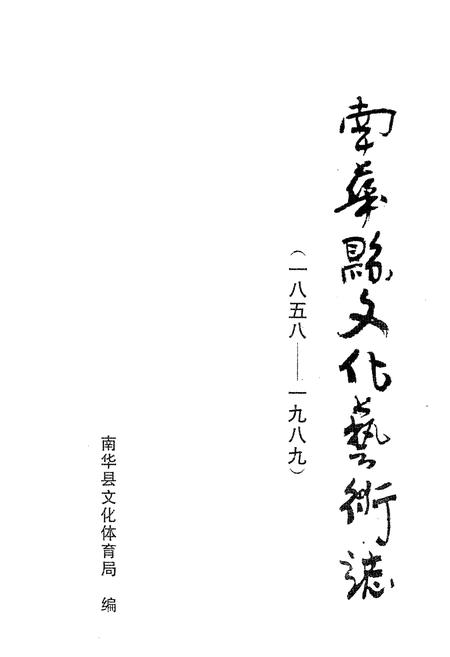 南華縣文化藝術誌
（一八五八——一九八九）
南华县文化体育局 编